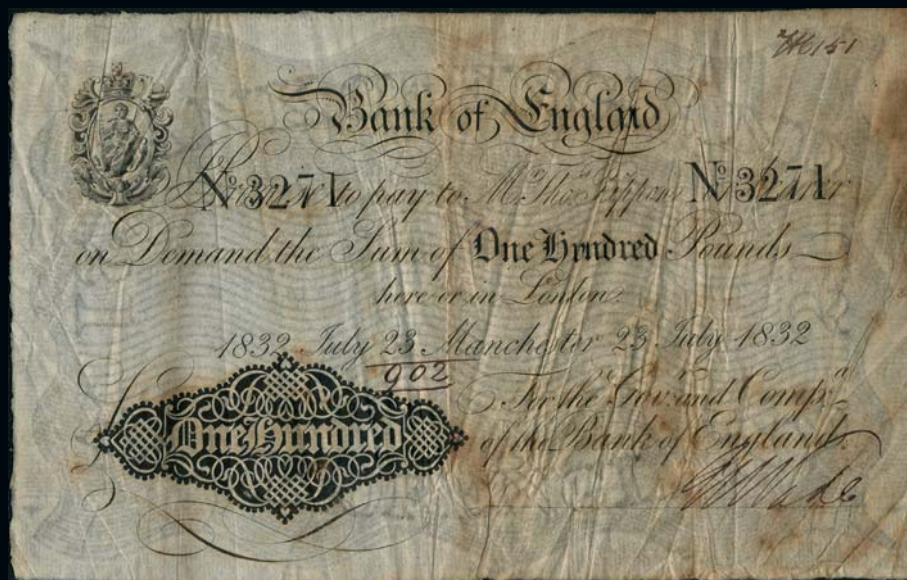 151
Bank of England
I Promise to pay to Mr. Thos. Rippon or bearer
No 3271 No 3271
on Demand the Sum of One Hundred Pounds
here or in London
1832 July 23 Manchester 23 July 1832
902
For the Govr. and Compa.
of the Bank of England.
£ One Hundred